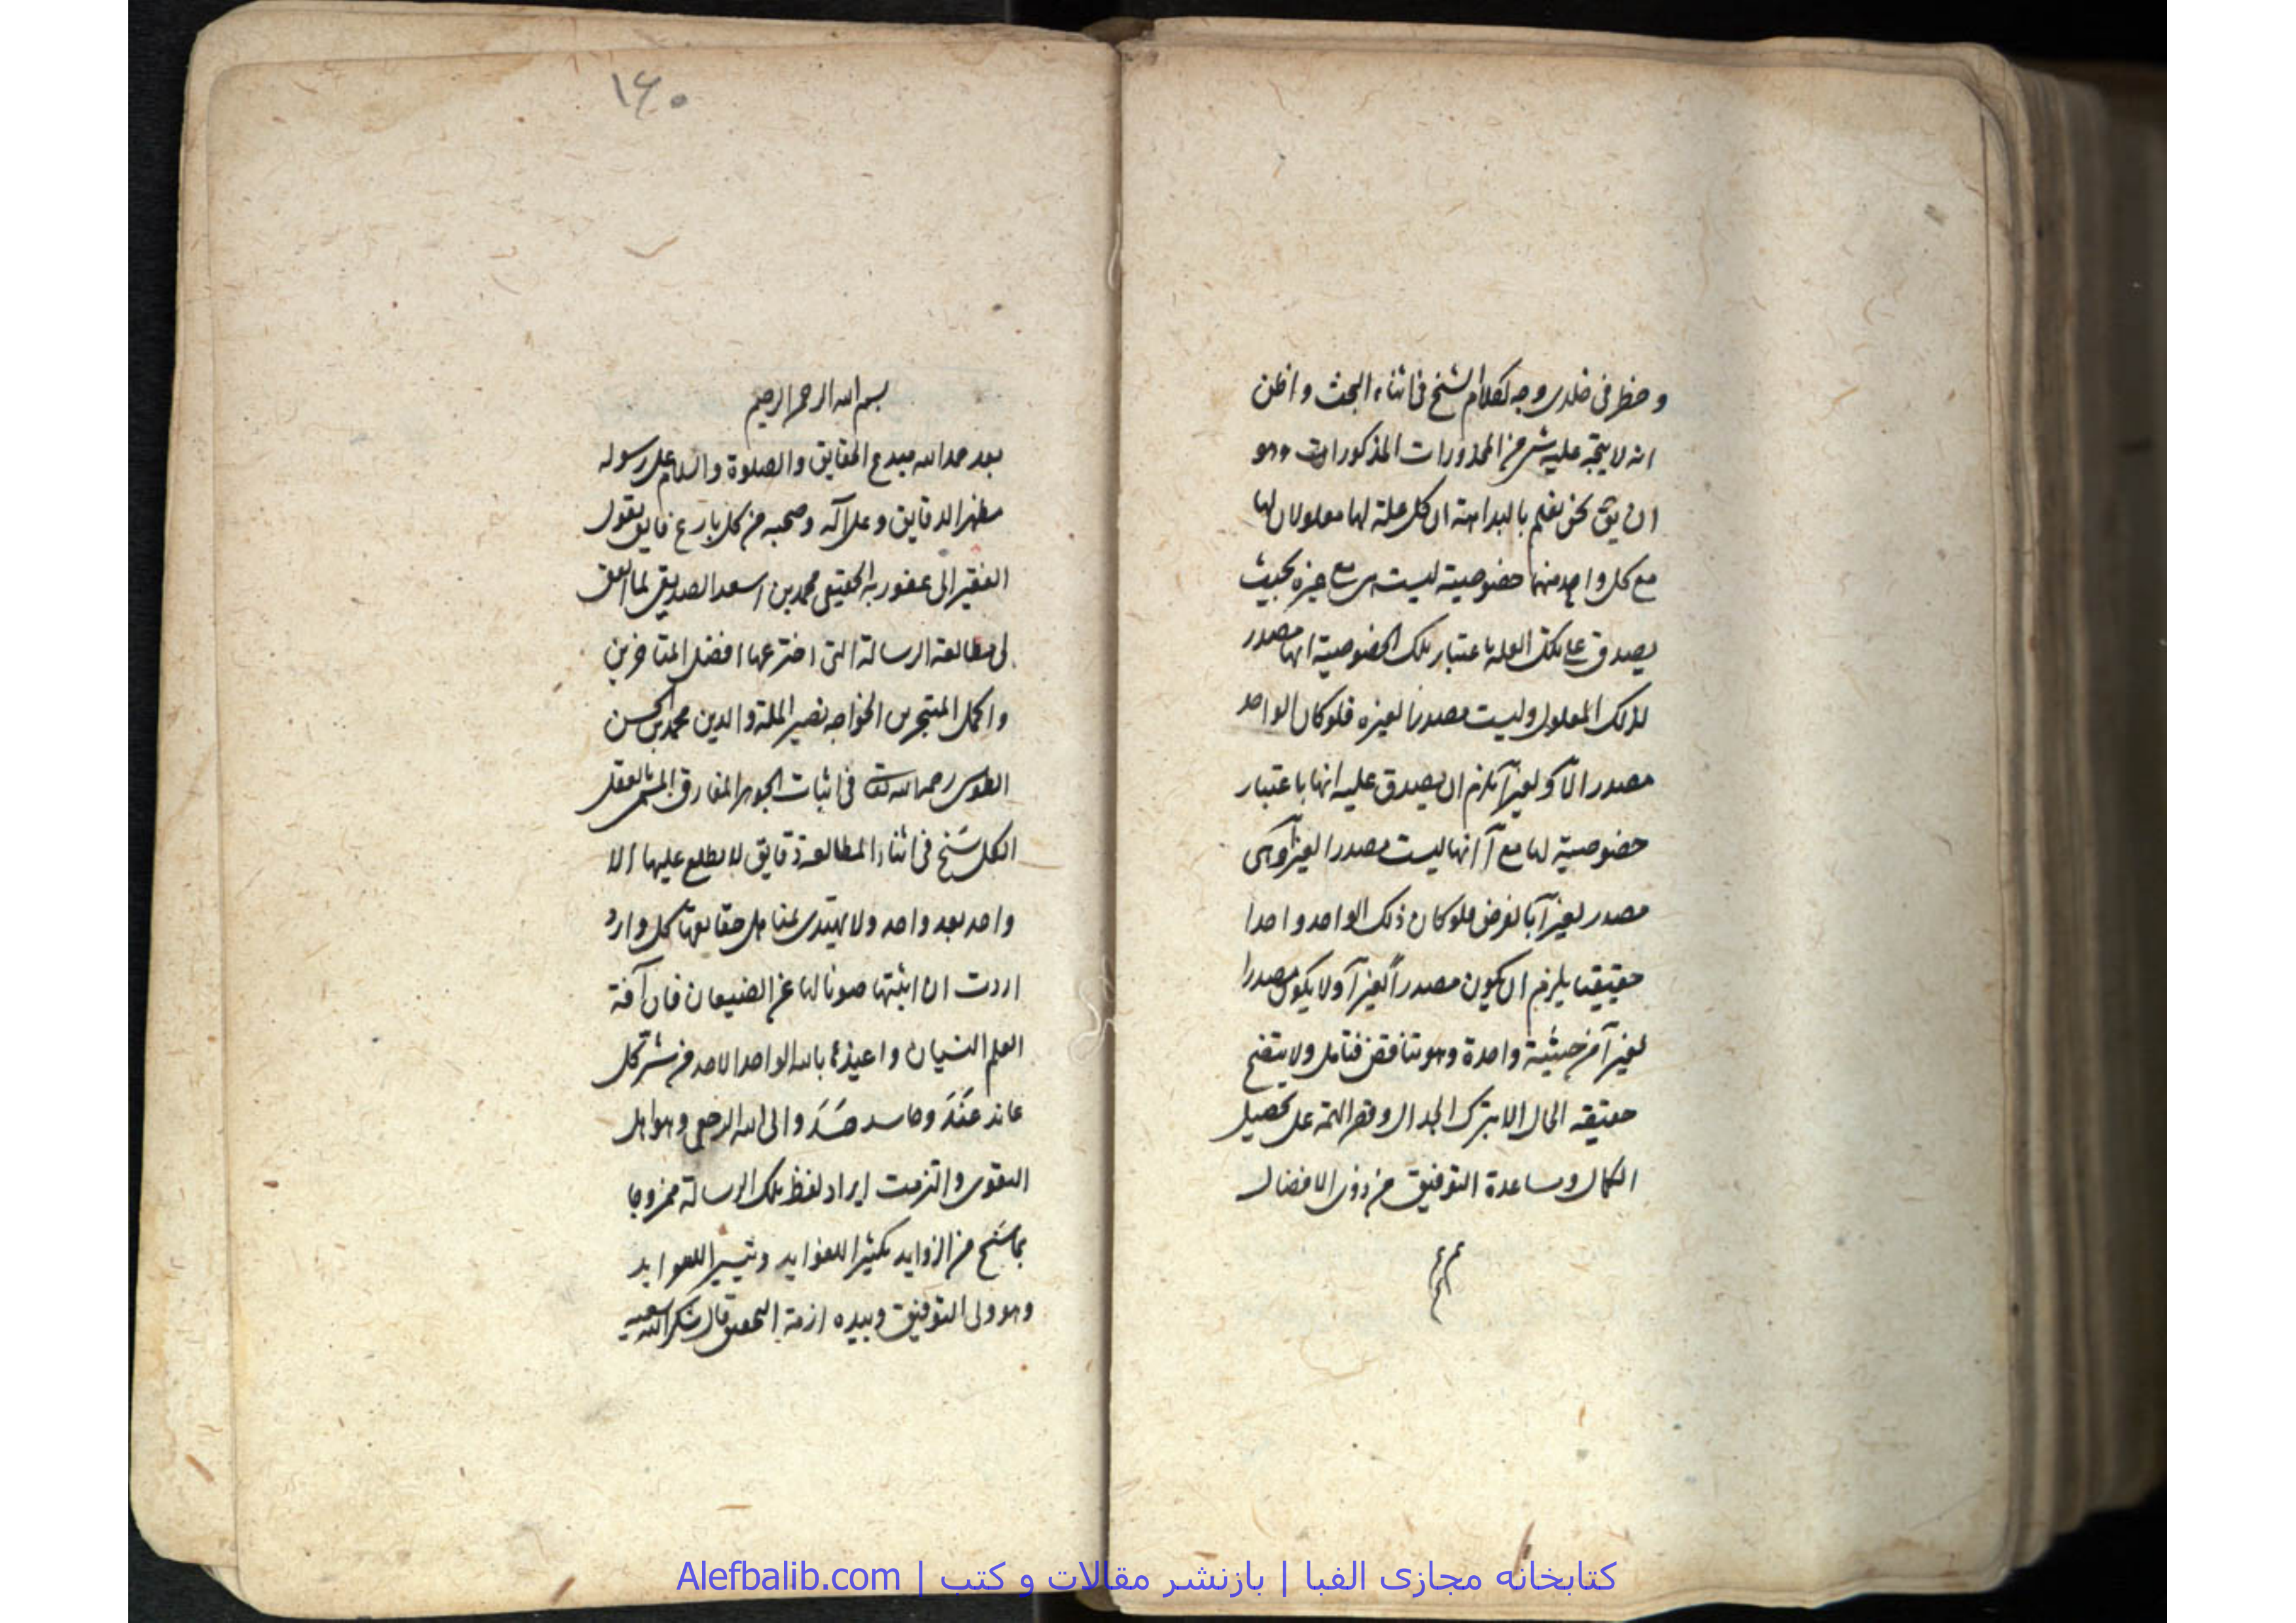 وخطر فى خلدى وجه لكلام الشيخ فى اثناء البحث واظن
انه لا يتجه عليه شىء من المحذورات المذكورات وهو
ان يق نحن نعلم بالبداهة ان كل علة لها معلولان لها
مع كل واحد منهما خصوصية ليست هى مع غيره بحيث
يصدق على تلك العلة باعتبار تلك الخصوصية انها مصدر
لذلك المعلول وليست مصدرا لغيره فلو كان الواحد
مصدرا لآ ولغير آ يلزم ان يصدق عليه انها باعتبار
خصوصية لها مع آ انها ليست مصدرا لغير آ وهى
مصدر لغير آ بالفرض فلو كان ذلك الواحد واحدا
حقيقيا يلزم ان يكون مصدرا لغير آ ولا يكون مصدرا
لغير آ من حيثية واحدة وهو تناقض فتامل ولا يتضح
حقيقة الحال الا بترك الجدال وقصر الهمة على تحصيل
الكمال ومساعدة التوفيق من ذوى الافضال
١٤٠
بسم الله الرحمن الرحيم
بعد حمد الله مبدع الحقايق والصلوة والسلام على رسوله
مظهر الدقايق وعلى آله وصحبه من كل بارع فايق يقول
الفقير الى عفو ربه الحقيقى محمد بن اسعد الصديقى لما اتفق
لى مطالعة الرسالة التى اخترعها افضل المتاخرين
واكمل المتبحرين الخواجه نصير الملة والدين محمد بن الحسن
الطوسى رحمه الله تعالى فى اثبات الجوهر المفارق المسمى بالعقل
الكل سنح فى اثناء المطالعة دقايق لا يطلع عليها الا
واحد بعد واحد ولا يهتدى مناهل حقايقها كل وارد
اردت ان اثبتها صونا لها عن الضيعان فان آفة
العلم النسيان واعيذها بالله الواحد الاحد من شر كل
عاند عَنَدَ وحاسد حَسَدَ والى الله الرجعى وهو اهل
التقوى والتزمت ايراد لفظ تلك الرسالة ممزوجا
بما سنح من الزوايد تكثيرا للفوايد وتيسيرا للعوايد
وهو ولى التوفيق وبيده ازمة التحقيق قال شكر الله سعيه
کتابخانه مجازی الفبا | بازنشر مقالات و کتب | Alefbalib.com